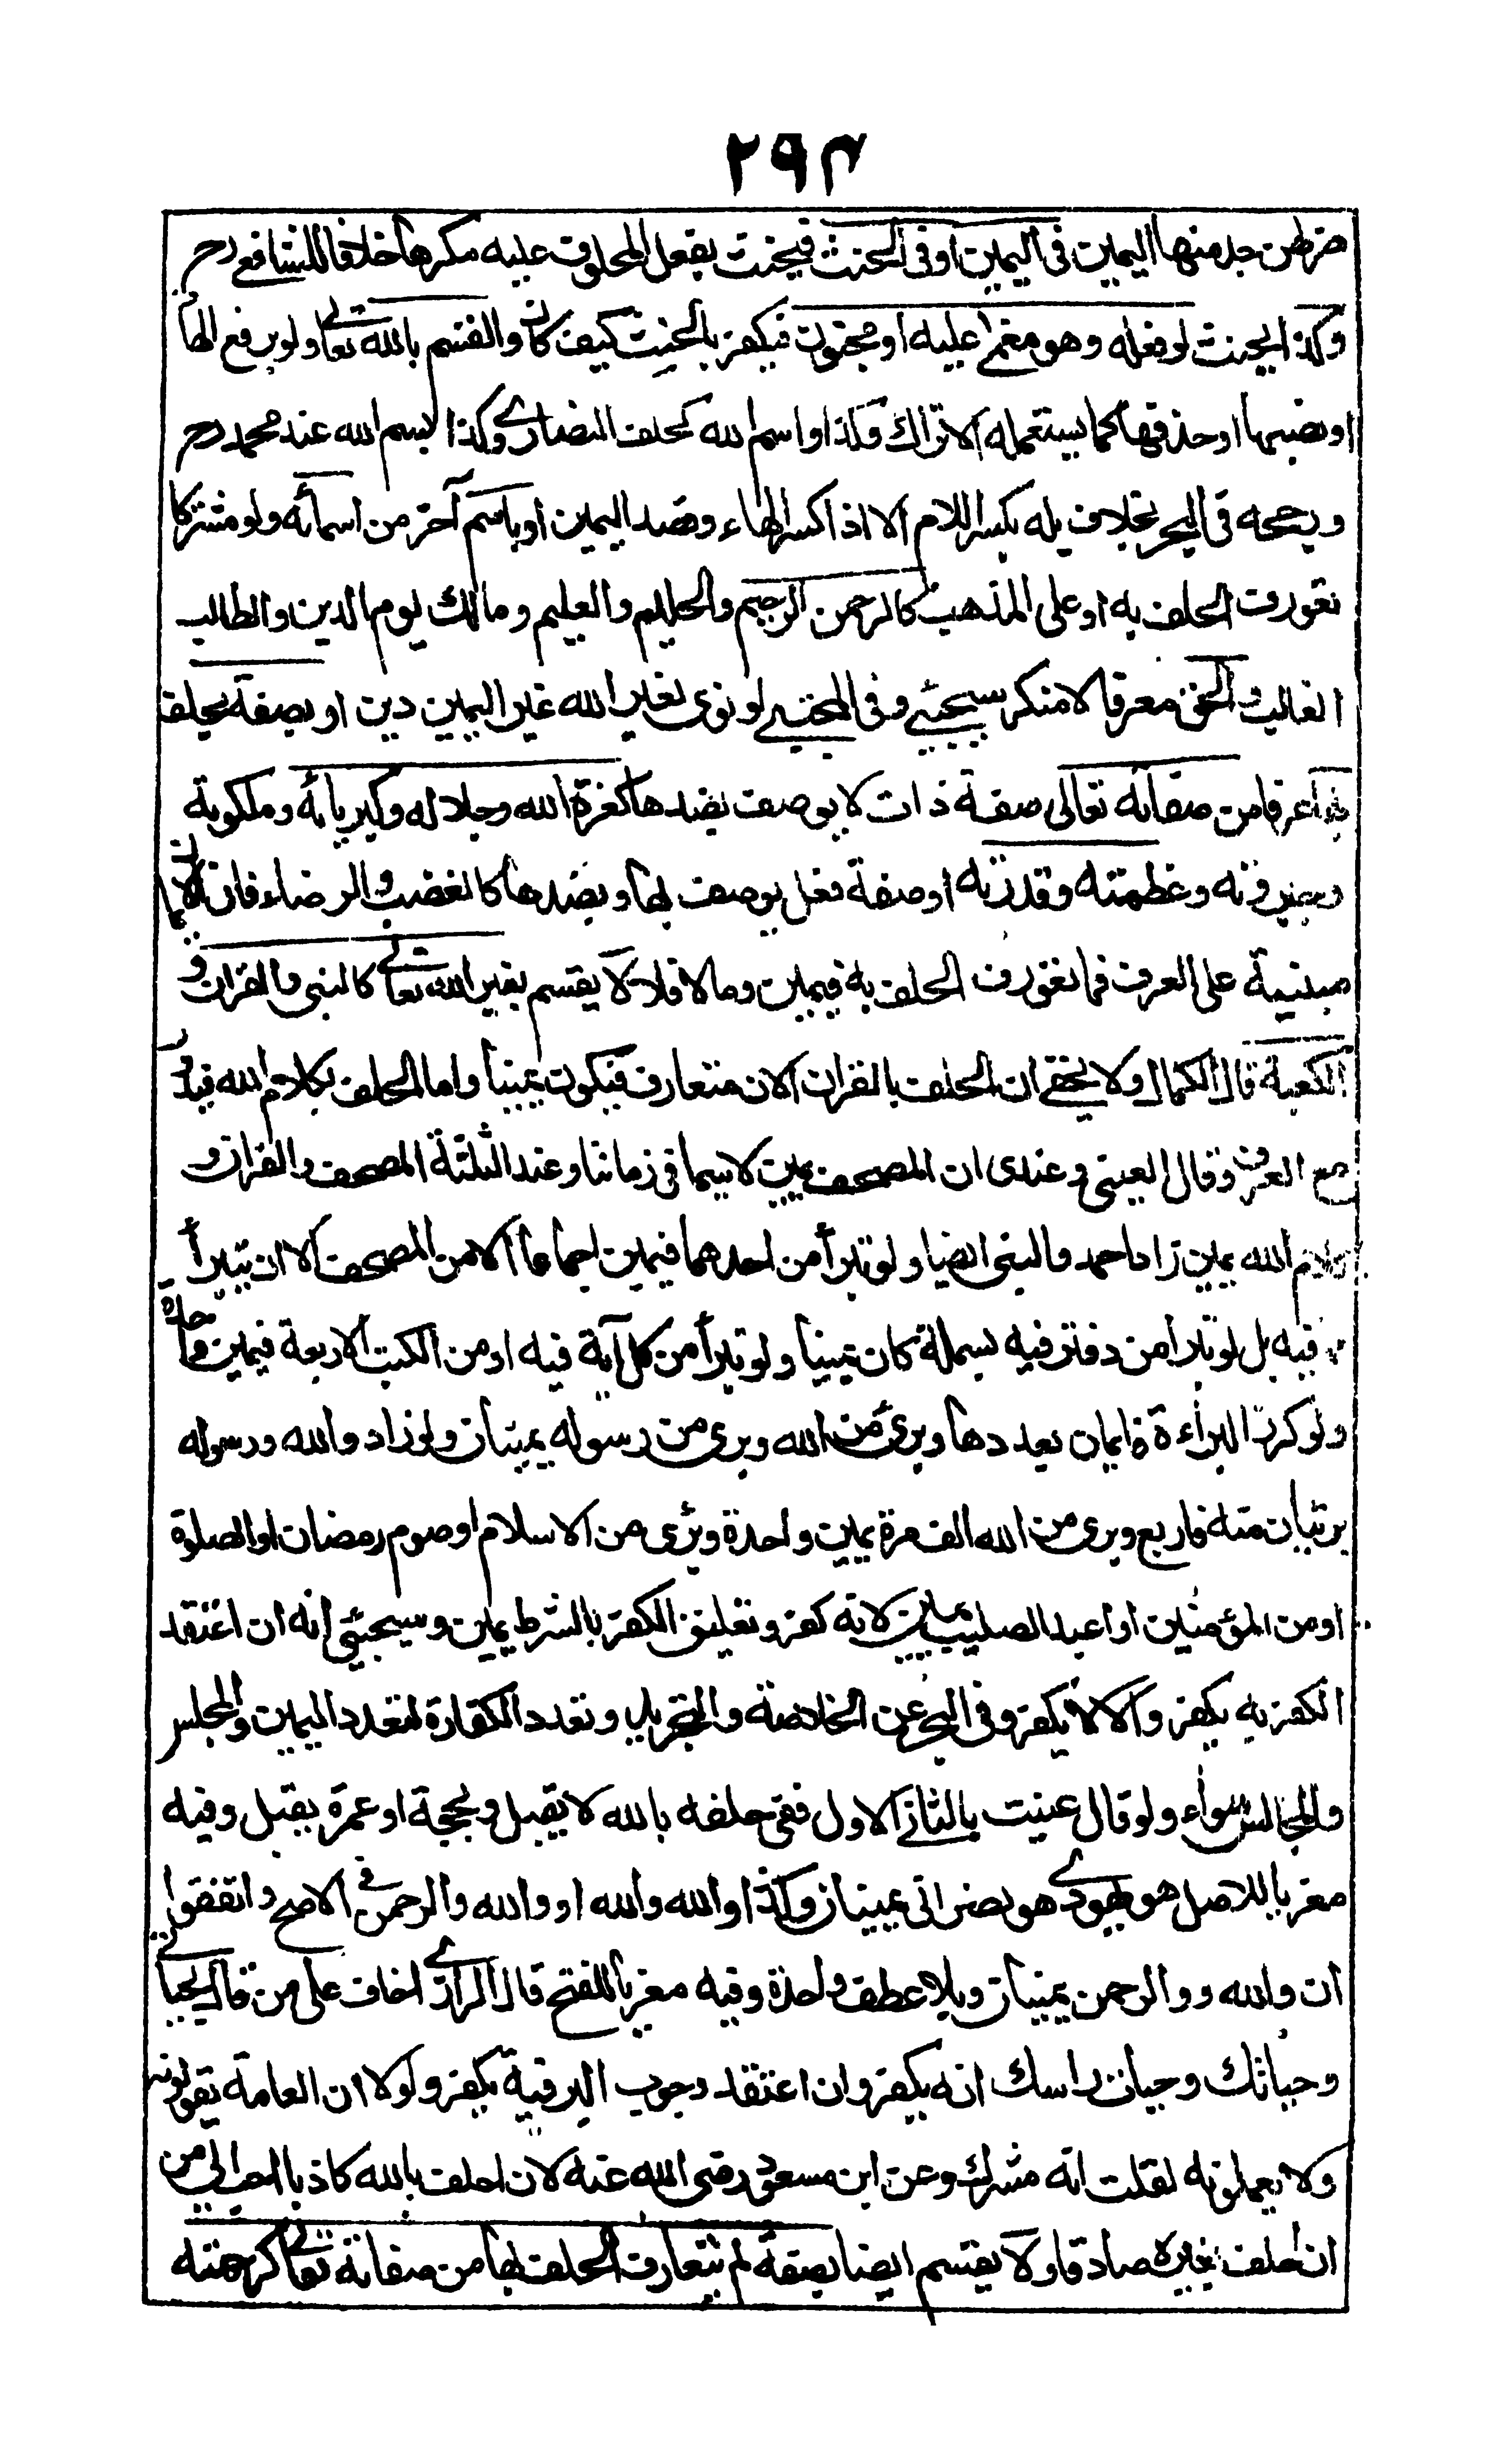 ٢٩٣
جدهن جد منها اليمين فى اليمين او فى الحنث فيحنث بفعل المحلوف عليه مكرها خلافا للشافعى رح
وكذا يحنث لو فعله وهو مغمى عليه او مجنون فيكفر بالحنث كيف كان والقسم بالله تعالى ولو برفع الهأ
او نصبها او حذفها كما يستعمله الاتراك وكذا واسم الله كحلف النصارى وكذا بسم الله عند محمد رح
ورجحه فى البحر بخلاف بله بكسر اللام الا اذا كسر الهاء وقصد اليمين او باسم آخر من اسمائه ولو مشتركا
تعورف الحلف به او على المذهب كالرحمن الرحيم والحليم والعليم ومالك يوم الدين والطالب
الغالب والحق معرفا لا منكر سيجئ وفى المجتبى لو نوى بغير الله غير اليمين دين او بصفة يحلف
بها عرفا من صفاته تعالى صفة ذات لا يوصف بضدها كعزة الله وجلاله وكبريائه وملكوته
وجبروته وعظمته وقدرته او صفة فعل يوصف بها وبضدها كالغضب والرضاء فان الايمان
مبنية على العرف فما تعورف الحلف به فيمين وما لا فلا لا يقسم بغير الله تعالى كالنبى والقران و
الكعبة قال الكمال ولا يخفى ان الحلف بالقران الان متعارف فيكون يمينا واما الحلف بكلام الله فيدور
مع العرف وقال العينى وعندى ان المصحف يمين لا سيما فى زماننا وعند الثلثة المصحف والقران و
كلام الله يمين زاد احمد والنبى ايضا ولو تبرأ من احدهما فيمين اجماعا الا من المصحف الا ان تبرأ
مما فيه بل لو تبرا من دفتر فيه بسملة كان يمينا ولو تبرأ من كل آية فيه او من الكتب الاربعة فيمين واحدة
ولو كرر البراءة فايمان بعددها وبرئ من الله وبرى من رسوله يمينان ولو زاد والله ورسوله
بريئان منه فاربع وبرى من الله الف مرة يمين واحدة وبرئ من الاسلام او صوم رمضان او الصلوة
او من المؤمنين او اعبد الصليب يمين لانه كفر وتعليق الكفر بالشرط يمين وسيجئى انه ان اعتقد
الكفر به يكفر والا لا يكفر وفى البحر عن الخلاصة والتجريد وتعدد الكفارة لتعدد اليمين والمجلس
والمجالس سواء ولو قال عنيت بالثانى الاول ففى حلفه بالله لا يقبل وبحجة او عمرة يقبل وفيه
معزيا للاصل هو يهودى هو نصرانى يمينان وكذا والله والله او والله والرحمن فى الاصح واتفقوا
ان والله ووالرحمن يمينان وبلا عطف واحدة وفيه معزيا للفتح قال الرازى اخاف على من قال بحياتى
وحياتك وحيات راسك انه يكفر وان اعتقد وجوب البر فيه يكفر ولولا ان العامة يقولونه
ولا يعلمونه لقلت انه مشرك وعن ابن مسعود رضى الله عنه لان احلف بالله كاذبا احب الى من
ان احلف بغيره صادقا ولا يقسم ايضا بصفة لم يتعارف الحلف بها من صفاته تعالى كرحمته